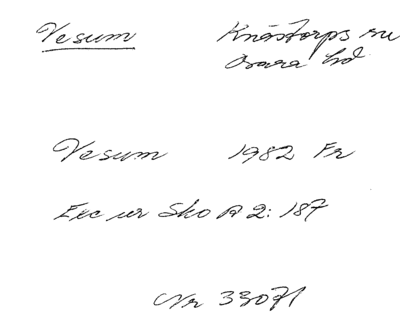 Vesum Knästorps sn
Bara hd
Vesum 1982 Fr
Exc ur Sko A 2: 187
Nr 33071